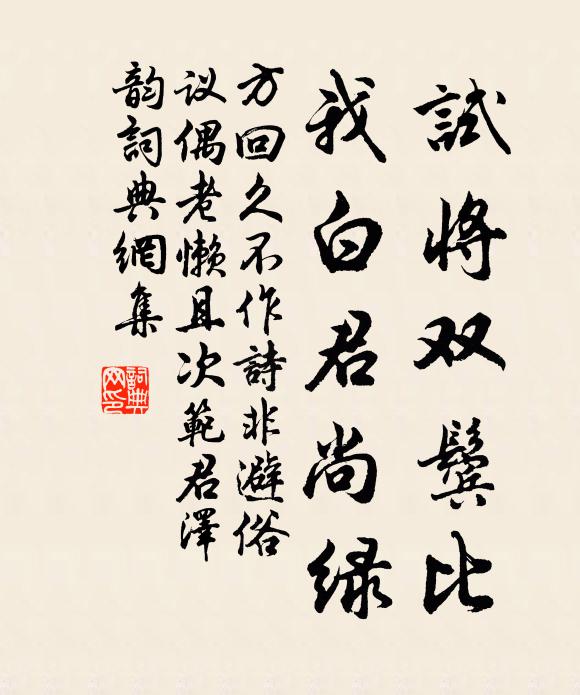 試将双鬓比
我白君尚绿
方回久不作詩非避俗
议偶老懒且次範君澤
韵詞典網集
詞典网印